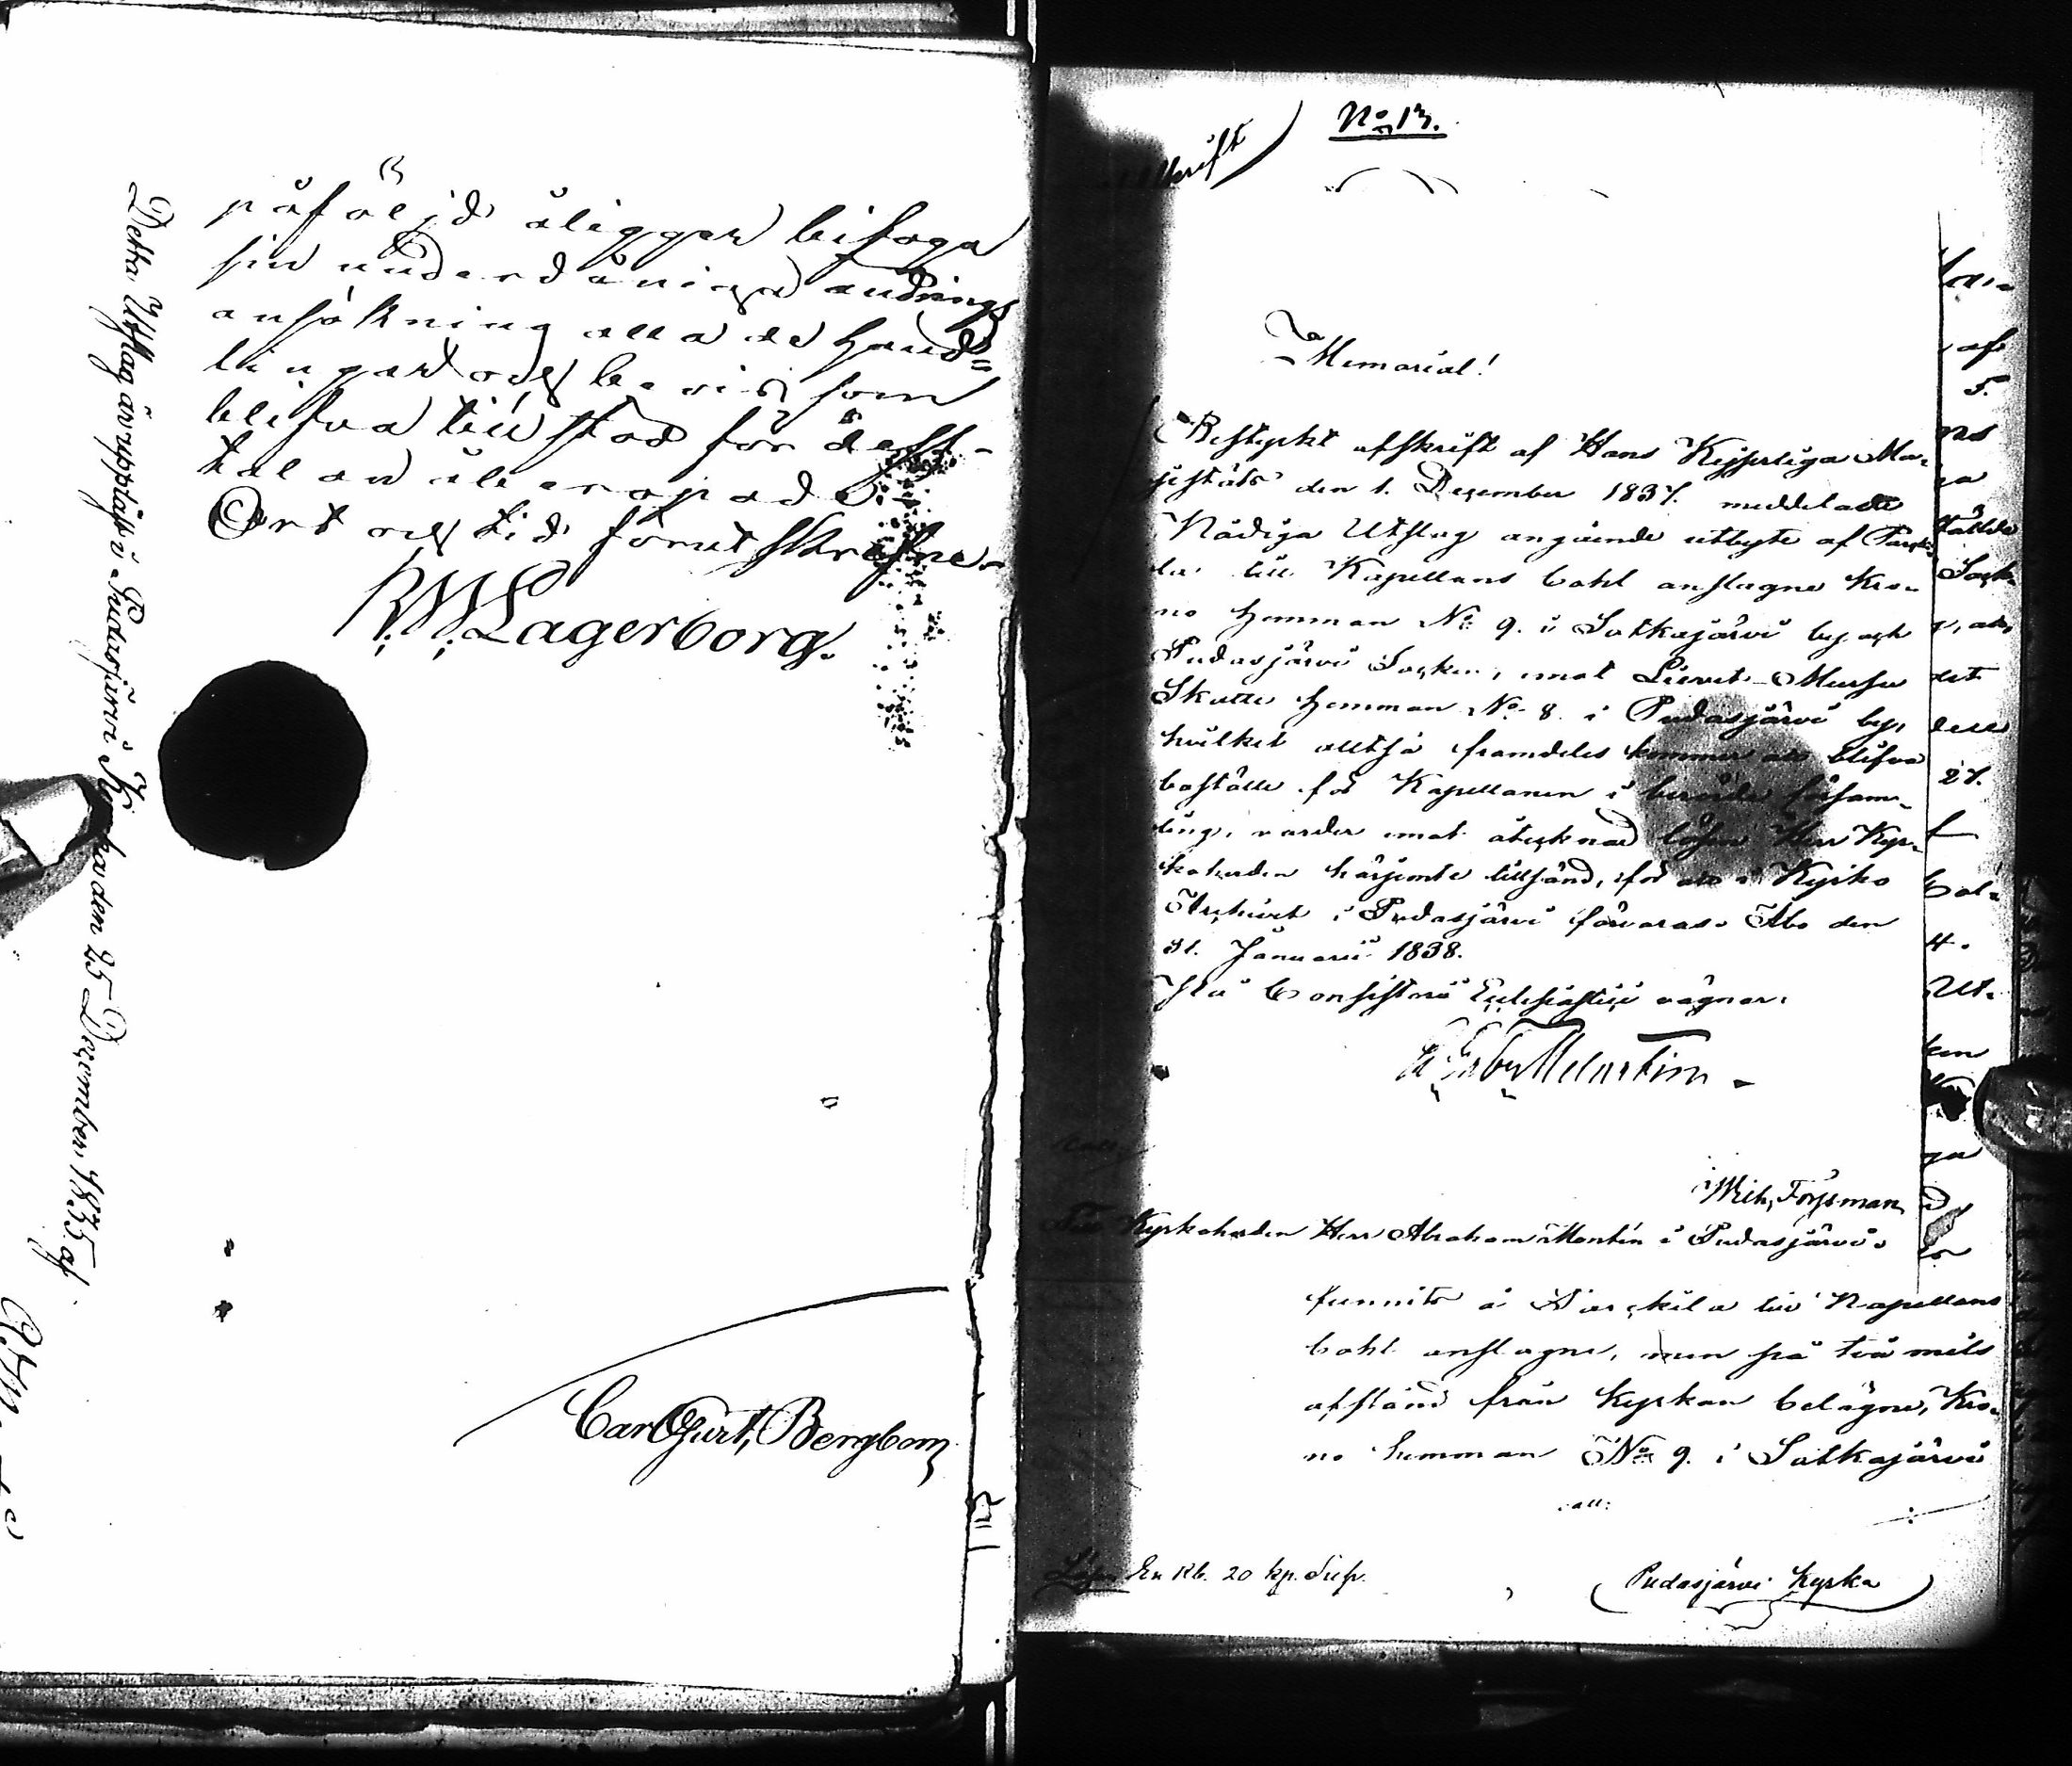 påföljd åligger bifoga
sin underdåniga ändrings
ansökning alla de hand=
lingar och bevis som
blifva till stöd för dess
talan åberopade.
Ort och tid förutskrefne.
R. W. Lagerborg.
Detta Utslag är uppläst i Pudasjärvi Kyrka den 25 December 1835. af
Carl Gust. Bergbom
No 13.
Memorial!
Bestyrkt afskrift af Hans Kejserliga Ma-
jestäts den 1. December 1837. meddelade
Nådiga Utslag angående utbyte af
till Kapellans bohl anslagne Kro-
no Hemman No 9. i Sotkajärvi by och
Pudasjärvi Socken, emot
Skatte Hemman No 8. i Pudasjärvi by,
hvilket alltså framdeles kommer att blifva
boställe för Kapellanen i berörde försam-
ling, varder emot åtecknad lösen Herr Kyr-
koherden härjemte tillsänd, för att i Kyrko
Archivet i Pudasjärvi förvaras. Åbo den
31. Januarii 1838.
På Consistorii Ecclesiastici vägnar:
Wilh. Forssman
Till Kyrkoherden Herr Abraham Montin i Pudasjärvi.
af
5.
Sock-
det
27.
4.
Ut-
funnits å till Kapellans
bohl anslagne, men på två mils
afstånd från kyrkan belägne, Kro-
no hemman No 9. i Sotkajärvi
Lösen En Rb. 20 kp. Silfv.
Pudasjärvi Kyrka